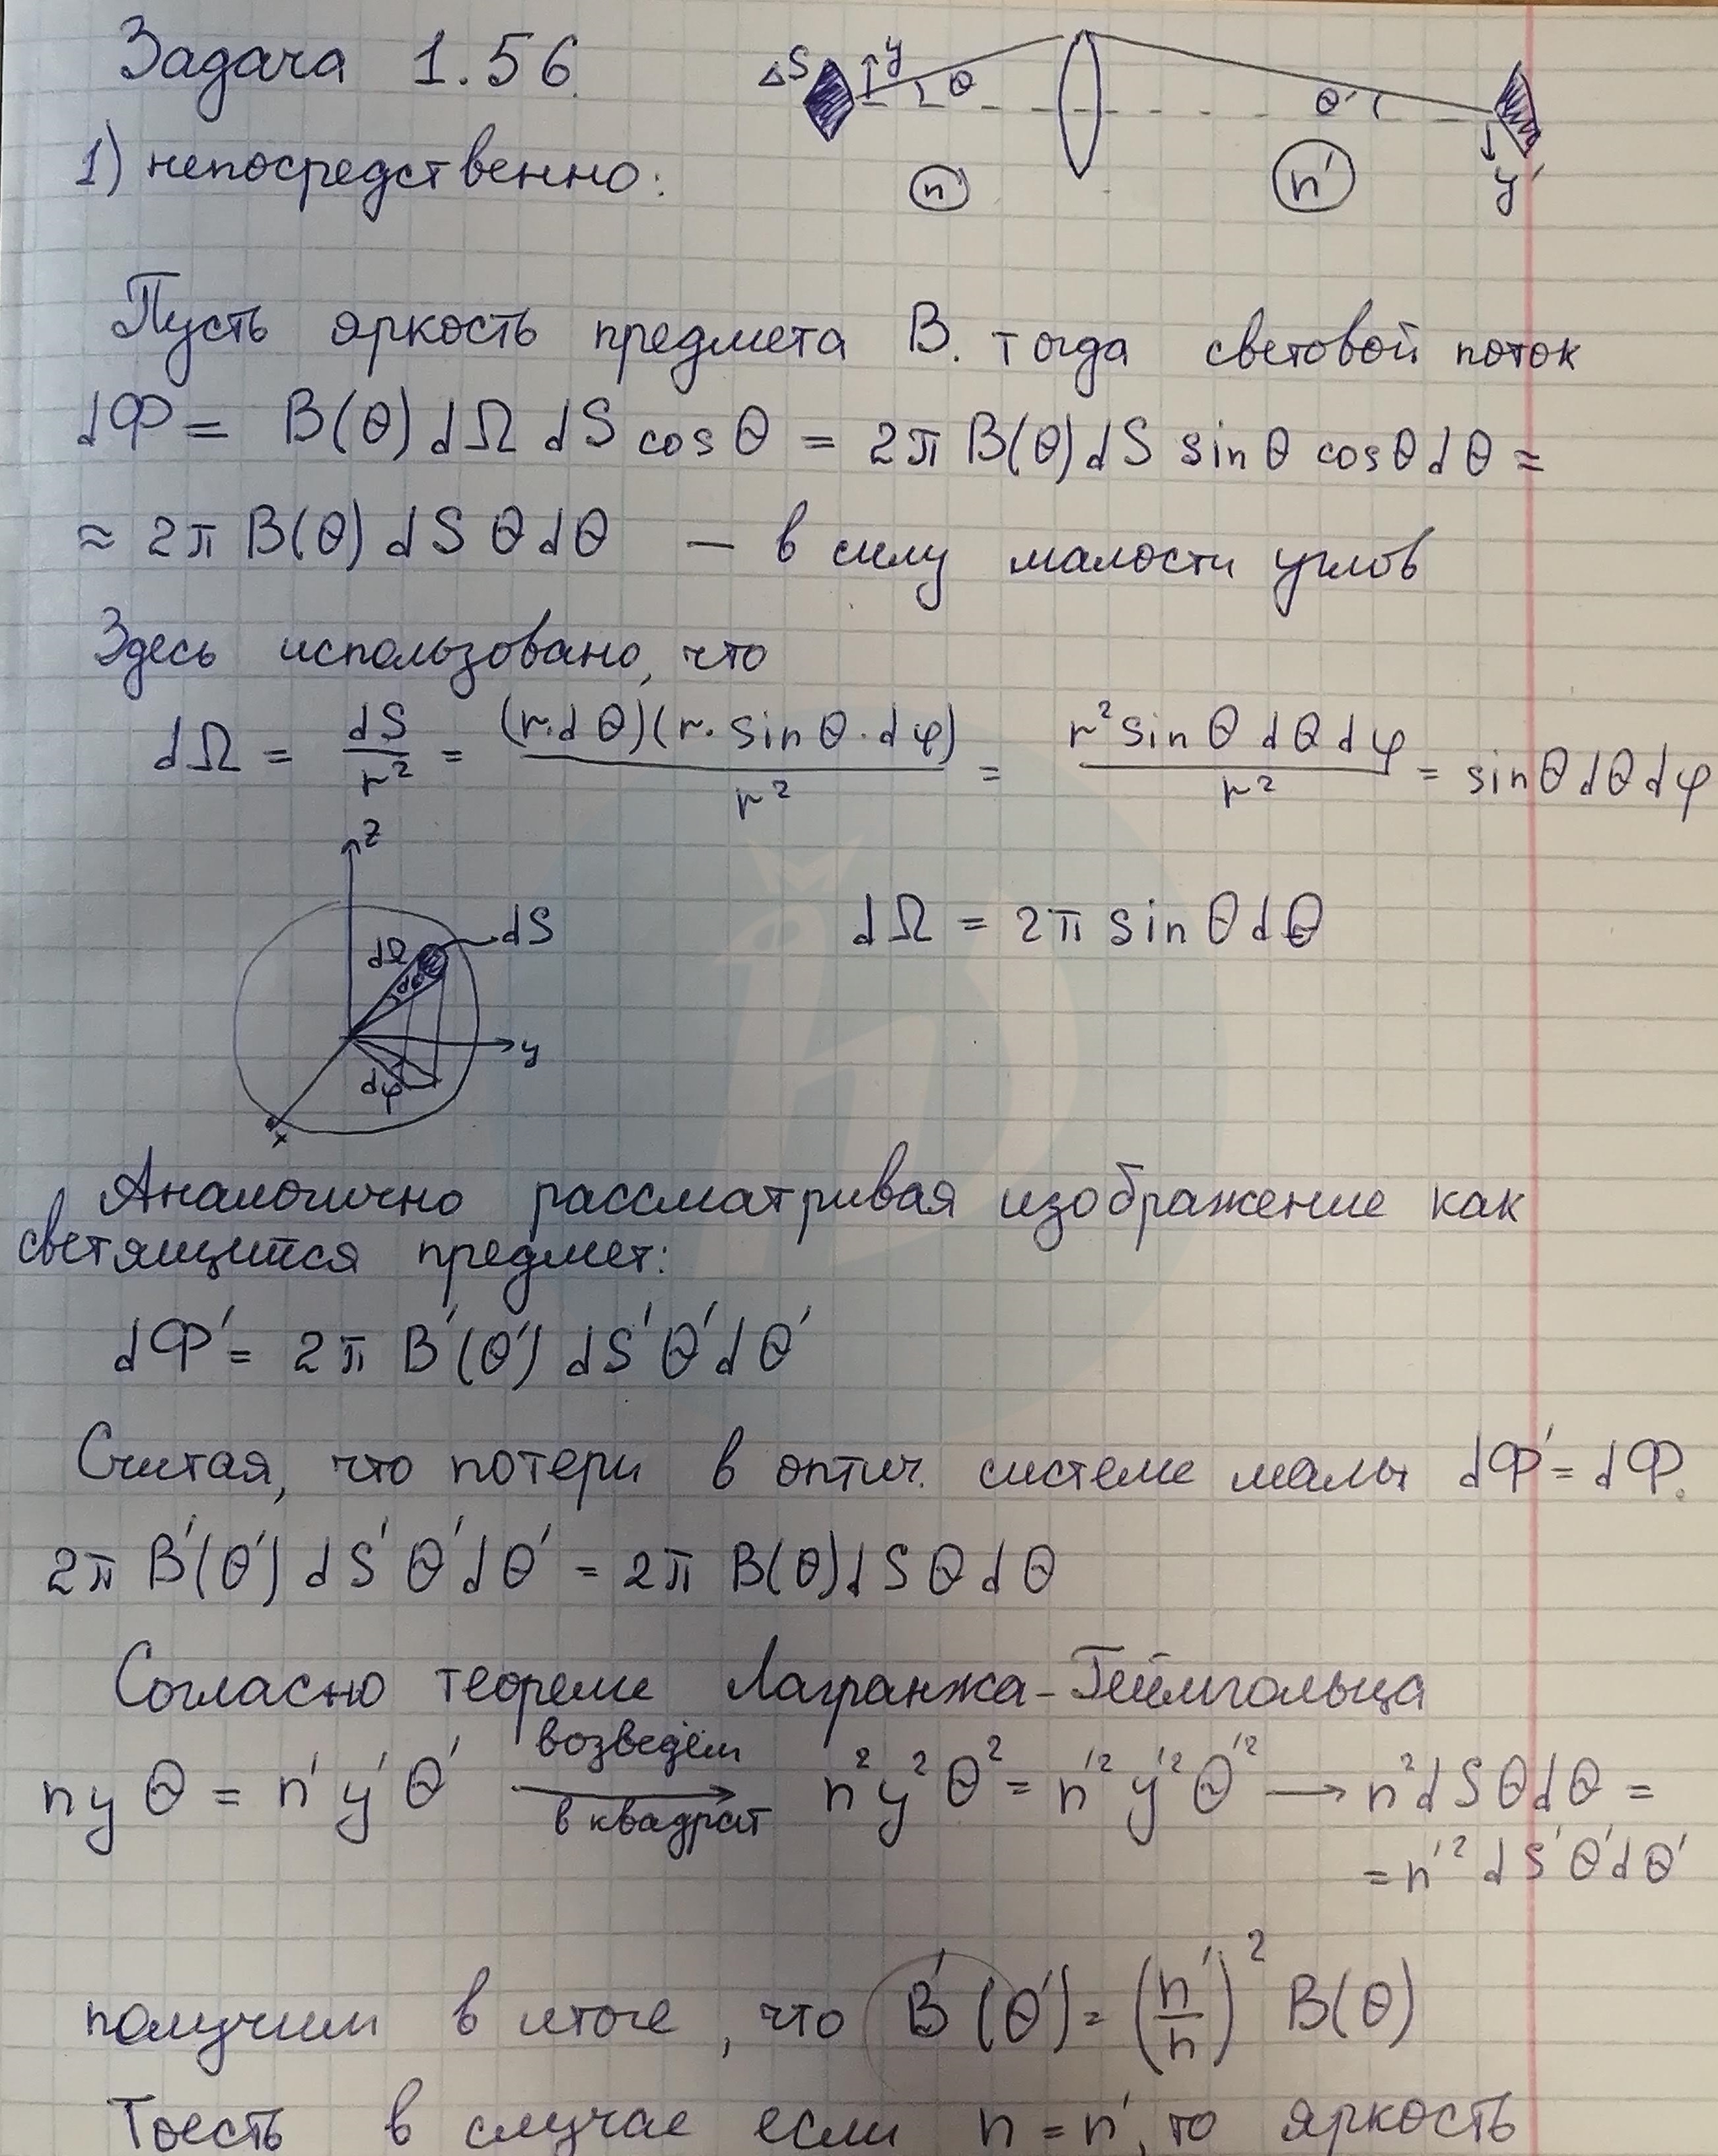 Задача 1.56.
ΔS y θ θ' y'
n n'
1) непосредственно:
Пусть яркость предмета B. тогда световой поток
dФ = B(θ) dΩ dS cosθ = 2π B(θ) dS sinθ cosθ dθ ≈
≈ 2π B(θ) dS θ dθ — в силу малости углов
Здесь использовано, что
dΩ = dS/r² = (r·dθ)(r·sinθ·dφ)/r² = r² sinθ dθ dφ/r² = sinθ dθ dφ
z
dΩ dθ dS
dΩ = 2π sinθ dθ
y
dφ
x
Аналогично рассматривая изображение как
светящийся предмет:
dФ' = 2π B'(θ') dS' θ' dθ'
Считая, что потери в оптич. системе малы dФ' = dФ.
2π B'(θ') dS' θ' dθ' = 2π B(θ) dS θ dθ
Согласно теореме Лагранжа-Геймгольца
n y θ = n' y' θ' возведём в квадрат n² y² θ² = n'² y'² θ'² → n² dS θ dθ =
= n'² dS' θ' dθ'
получим в итоге, что B'(θ') = (n'/n)² B(θ)
Тоесть в случае если n = n', то яркость